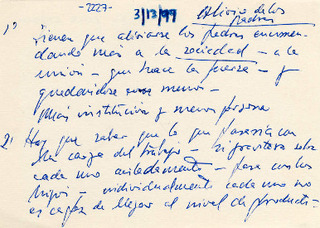 -2227-
3/12/99 Alivio de los padres
1º
Tienen que aliviarse los padres encomen-
dando más a la sociedad - a la
unión - que hace la fuerza - y
quedándose menos -
Más institución y menos persona
2) Hay que saber que lo que pasaría con
la carga del trabajo - si gravitara sobre
cada uno aisladamente - pasa con los
hijos - individualmente cada uno no
es capaz de llegar al nivel de producto -